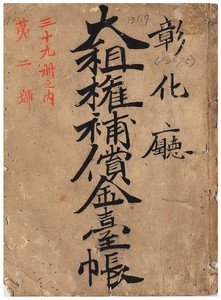 彰化廳
大租權補償金臺帳
三十九册之內
第二號